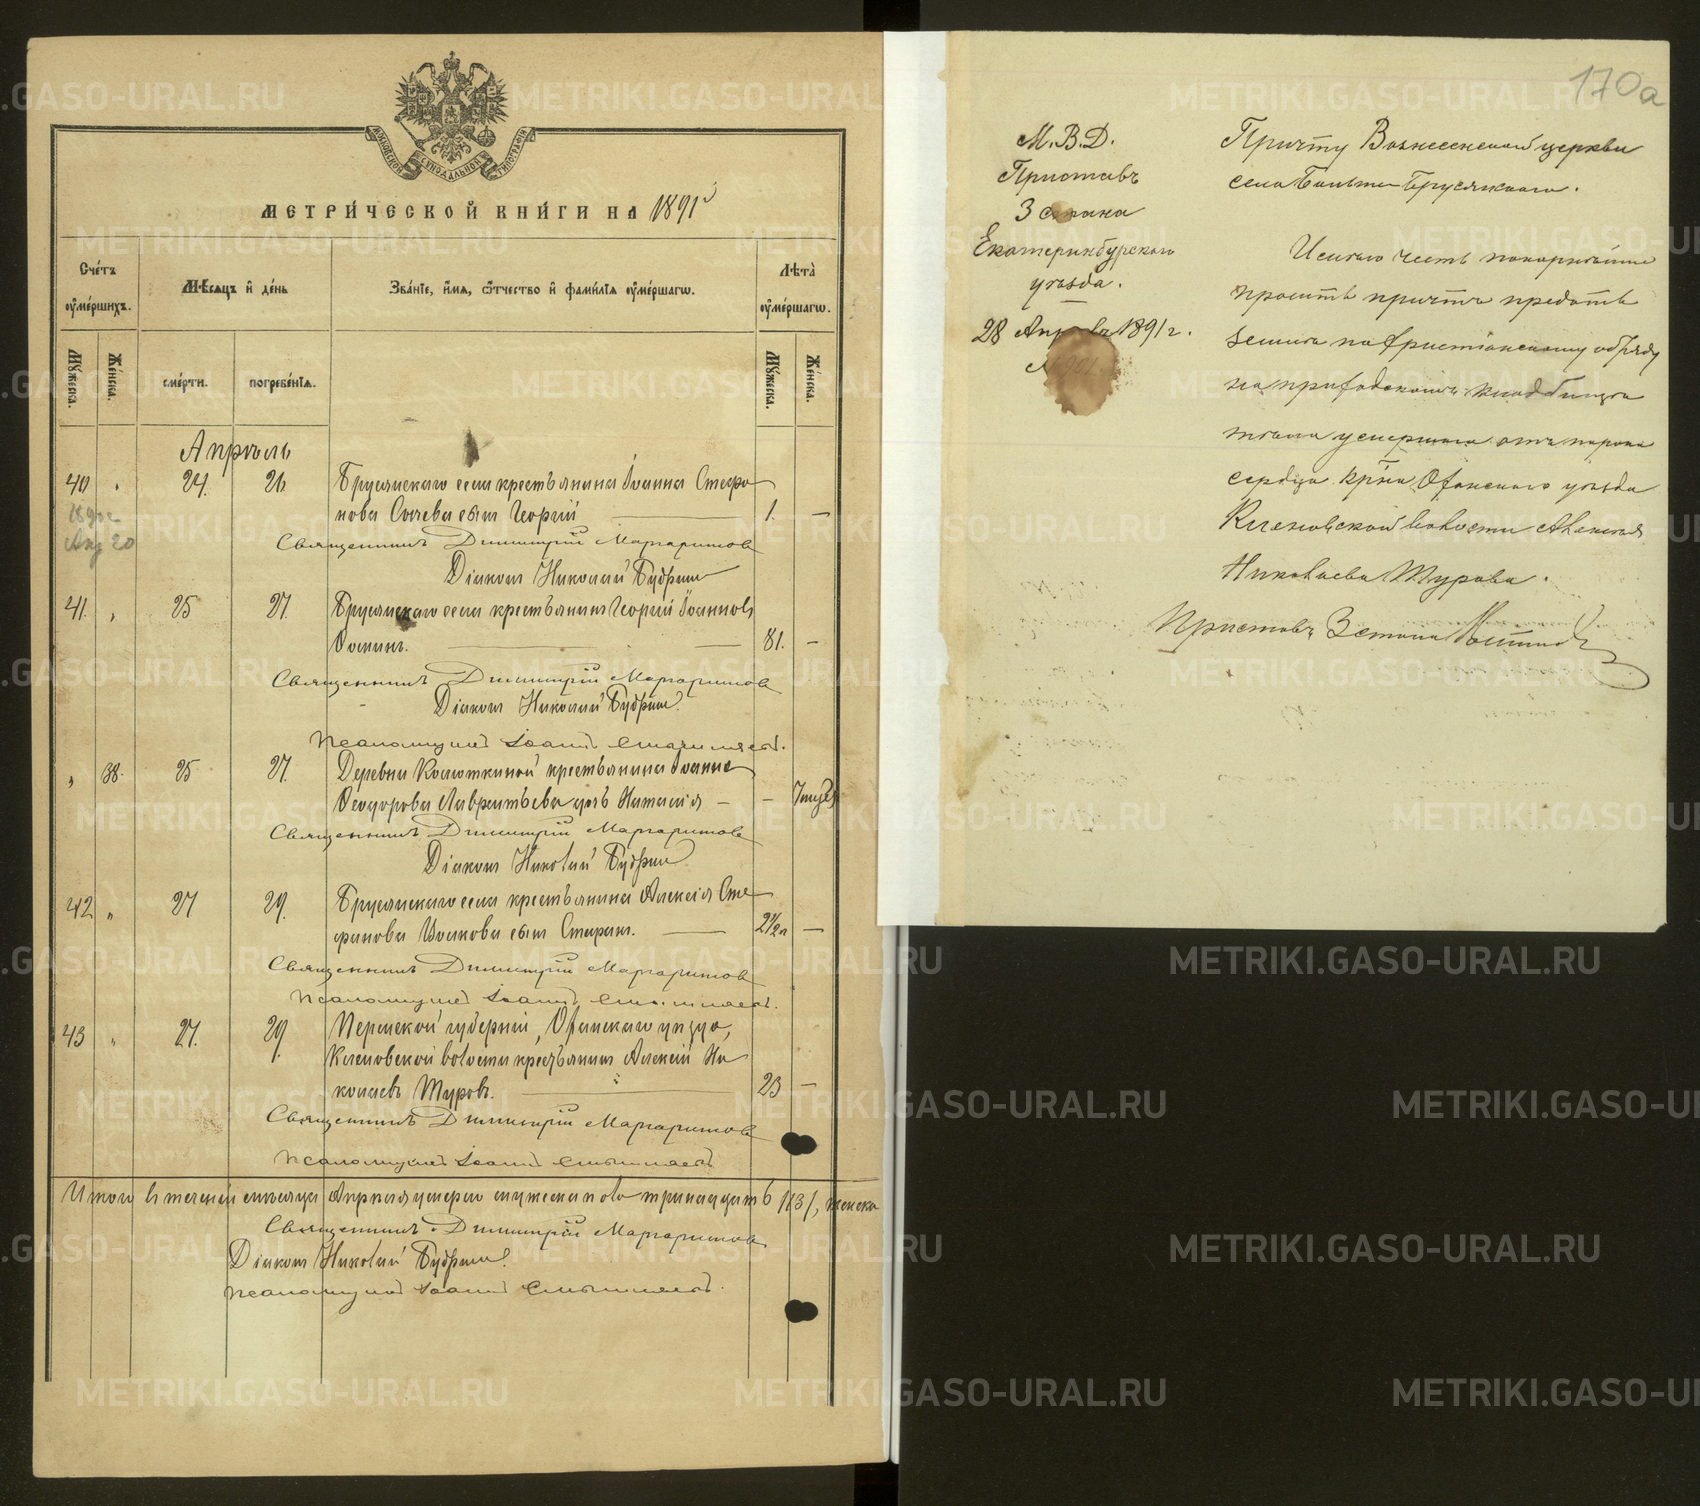 МОСКОВСКОЙ СУНОДАЛЬНОЙ ТИПОГРАФІИ
МЕТРИ́ЧЕСКОЙ КНИ́ГИ НА 1891й
Сче́тъ ѹ҆ме́ршихъ.
Мѣ́сѧцъ и҆ де́нь
Зва́нїе, и҆́мѧ, ѻ҆́тчество и҆ фами́лїѧ ѹ҆ме́ршагѡ.
Лѣ́та ѹ҆ме́ршагѡ.
Мꙋ́жеска.
Же́нска.
сме́рти.
погребе́нїѧ.
Мꙋ́жеска.
Же́нска.
Апрѣль
40 " 24. 26 Брусянскаго села крестьянина Іоанна Стефа
нова сынъ Георгій — 1. —
1890г
Апр 20
Священникъ Димитрій Маргаритовъ
Діаконъ Николай Бубринъ
41. " 25 27. Брусянскаго села крестьянинъ Георгій Іоанновъ
Ѳоминъ. — 81. —
Священникъ Димитрій Маргаритовъ
Діаконъ Николай Бубринъ.
Псаломщикъ Іоаннъ
" 38. 25 27. Деревни Колюткиной крестьянина Іоанна
Ѳеодорова Лаврентьева дочь Наталія — —
Священникъ Димитрій Маргаритовъ
Діаконъ Николай Бубринъ
42 " 27 29. Брусянскаго села крестьянина Алексія Сте
фанова Волкова сынъ Стефанъ. — 2½ —
Священникъ Димитрій Маргаритовъ
Псаломщикъ Іоаннъ
43 " 27. 29. Пермской губерніи, Оханскаго уѣзда,
Кленовской волости крестьянинъ Алексій Ни
колаевъ Шуровъ. — 23 —
Священникъ Димитрій Маргаритовъ
Псаломщикъ Іоаннъ
Итого в теченіи мѣсяца Апрѣля умерло мужеска пола тринадцать /13/, женска
Священникъ Димитрій Маргаритовъ
Діаконъ Николай Бубринъ.
Псаломщикъ Іоаннъ
170а
М.В.Д.
Приставъ
3 стана
Екатеринбургскаго
уѣзда.
28 Апрѣля 1891 г.
№ 901.
Причту Вознесенской церкви
села Больше-Брусянскаго.
Имѣю честь покорнѣйше
просить причтъ предать
землѣ по христіанскому обряду
на приходскомъ кладбищѣ
тѣло умершаго отъ порока
сердца кр-на Оханскаго уѣзда
Кленовской волости Алексѣя
Николаева Шурова.
Приставъ 3 стана
METRIKI.GASO-URAL.RU